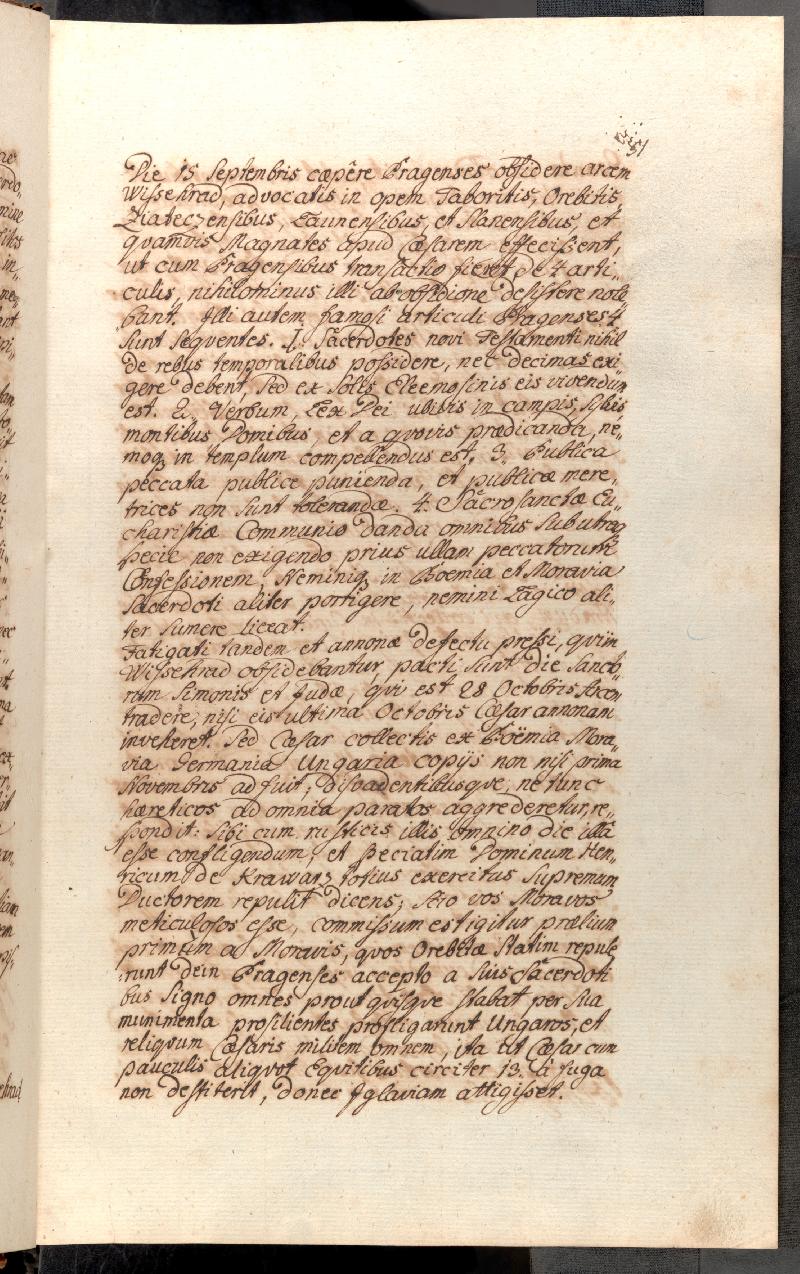 Die 15 Septembris cæpêre Pragenses obsidere arcem
Wissehrad, advocatis in opem Taboritis, Orebitis,
Ziateczensibus, Launensibus, et Slanensibus, et
qvamvis Magnates apud Cæsarem effecissent,
ut cum Pragensibus transactio fieret de 4 arti„
culis, nihilominus illi ab obsidione desistere nole„
bant. Illi autem famosi articuli Pragenses 4
sunt seqventes. I. Sacerdotes novi Testamenti nihil
de rebus temporalibus possidere, nec decimas exi„
gere debent, sed ex solis Eleemosinis eis vivendum
est. 2. Verbum, Lex Dei ubivis in campis, sylvis
montibus Domibus, et a qvovis prædicanda, ne„
moq. in templum compellendus est. 3. Publica
peccata publice punienda, et publicæ mere„
trices non sunt tolerandæ. 4. Sacrosanctæ Eu„
charistiæ Communio danda omnibus sub utraq
specie non exigendo prius ullam peccatorum
Confessionem, Neminiq. in Boemia et Moravia
Sacerdoti aliter porrigere, nemini Laico ali„
ter sumere liceat.
Fatigati tandem et annonæ defectu pressi, qvi in
Wissehrad obsidebantur, pacti sunt die Sancto„
rum Simonis et Judæ, qvi est 28 Octobris Arcem
tradere, nisi eis ultima Octobris Cæsar annonam
inveheret. Sed Cæsar collectis ex Boëmia Mora„
via Germania Ungaria copijs non nisi prima
Novembris adfuit, disvadentibusqve, ne tunc
hæreticos ad omnia paratos aggrederetur, re„
spondit: Sibi cum rusticis illis omnino die illâ
esse confligendum, et speciatim Dominum Hen„
ricum de Krawarz totius exercitus Supremum
Ductorem repulit dicens, Scio vos Moravos
meticulosos esse, commissum est igitur prælium
primum a Moravis, qvos Orebitæ statim repule„
runt dein Pragenses accepto a suis Sacerdoti
bus signo omnes prout qvisqve stabat per sua
munimenta prosilientes profligarunt Ungaros, et
reliqvum Cæsaris militem omnem, ita ut Cæsar cum
pauculis aliqvot Eqvitibus circiter 13. à fuga
non destiterit, donec Iglaviam attigisset.